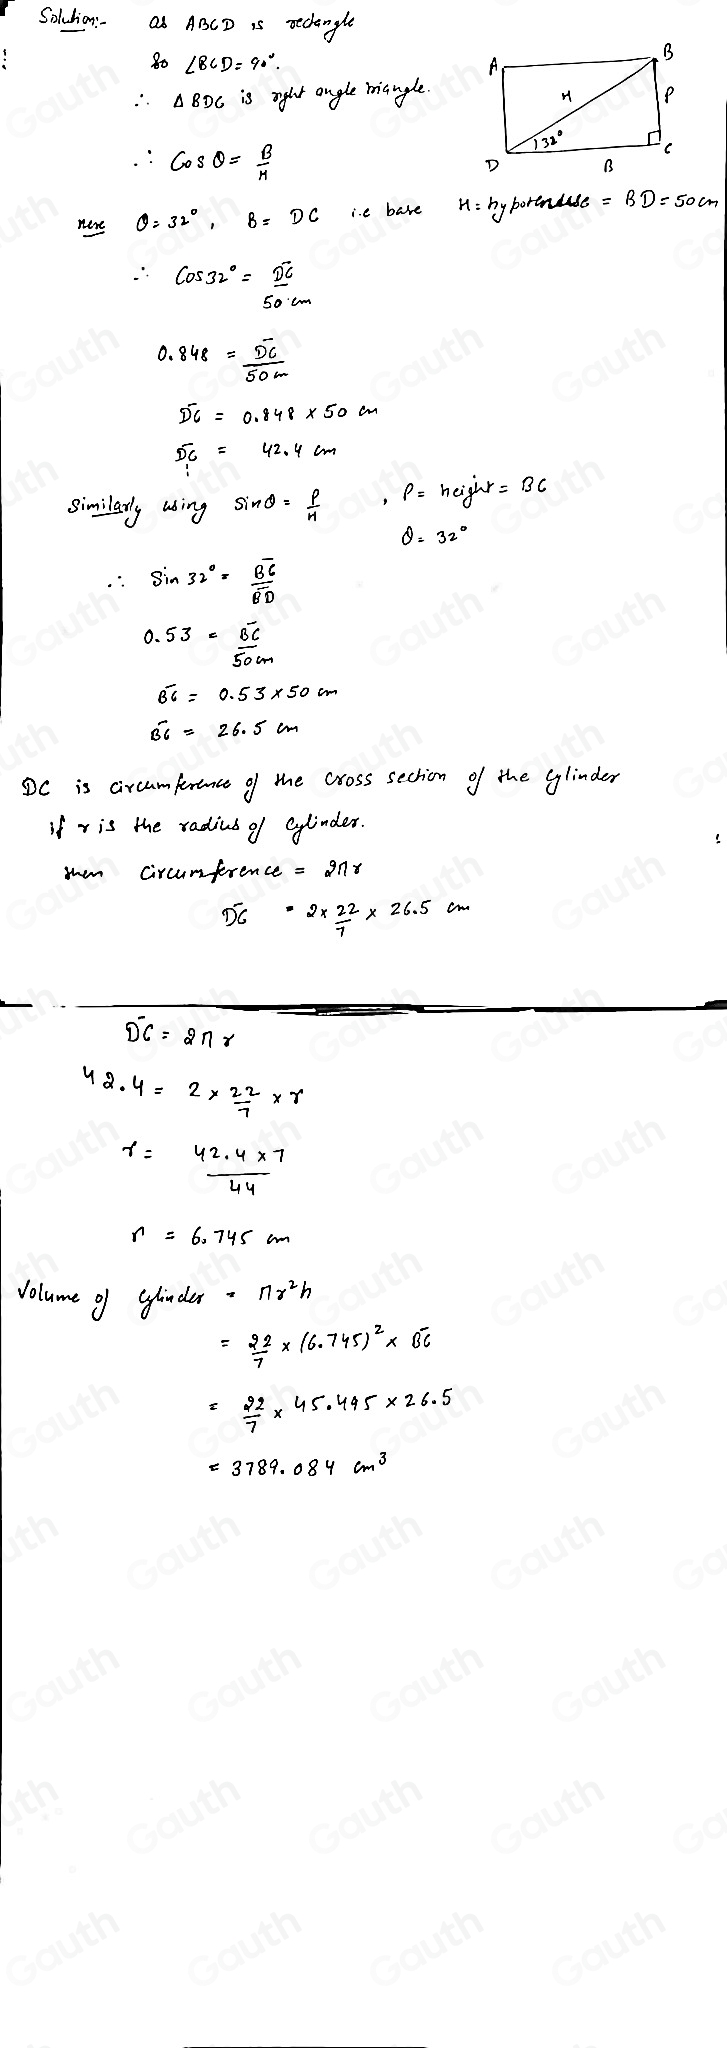 Solution:- as ABCD is rectangle
So ∠BCD = 90°.
∴ Δ BDC is right angle triangle.
A
B
H
P
32°
D
B
C
∴ Cos θ = B/H
Here θ = 32°, B = DC i.e base H = hypotenuse = BD = 50 cm
∴ Cos 32° = DC/50 cm
0.848 = DC/50 cm
DC = 0.848 × 50 cm
DC = 42.4 cm
Similarly using sin θ = P/H , P = height = BC
θ = 32°
∴ Sin 32° = BC/BD
0.53 = BC/50 cm
BC = 0.53 × 50 cm
BC = 26.5 cm
DC is circumference of the cross section of the cylinder
if r is the radius of cylinder.
then circumference = 2πr
DC = 2 × 22/7 × 26.5 cm
DC = 2πr
42.4 = 2 × 22/7 × r
r = 42.4 × 7/44
r = 6.745 cm
Volume of cylinder = πr²h
= 22/7 × (6.745)² × BC
= 22/7 × 45.495 × 26.5
= 3789.084 cm³
Gauth